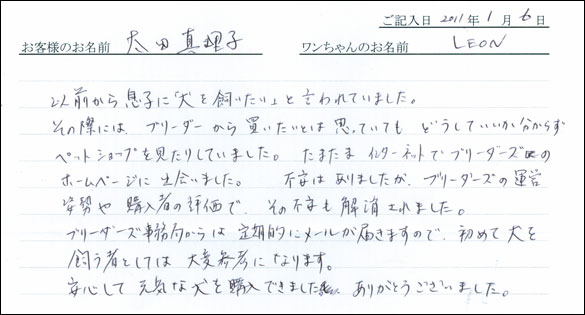 ご記入日 2011年 1月 6日
お客様のお名前 太田真理子 ワンちゃんのお名前 LEON
以前から息子に「犬を飼いたい」と言われていました。
その際には、ブリーダーから買いたいとは思っていても どうしていいか分からず
ペットショップを見たりしていました。 たまたま インターネットでブリーダーズの
ホームページに出会いました。 不安はありましたが、ブリーダーズの運営
姿勢や購入者の評価で、その不安も解消されました。
ブリーダーズ事務局からは定期的にメールが届きますので、初めて犬を
飼う者としては大変参考になります。
安心して元気な犬を購入できました。 ありがとうございました。